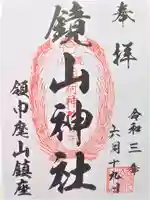 奉拝
令和三年
六月十九日
鏡山神社
領巾麾山鎮座